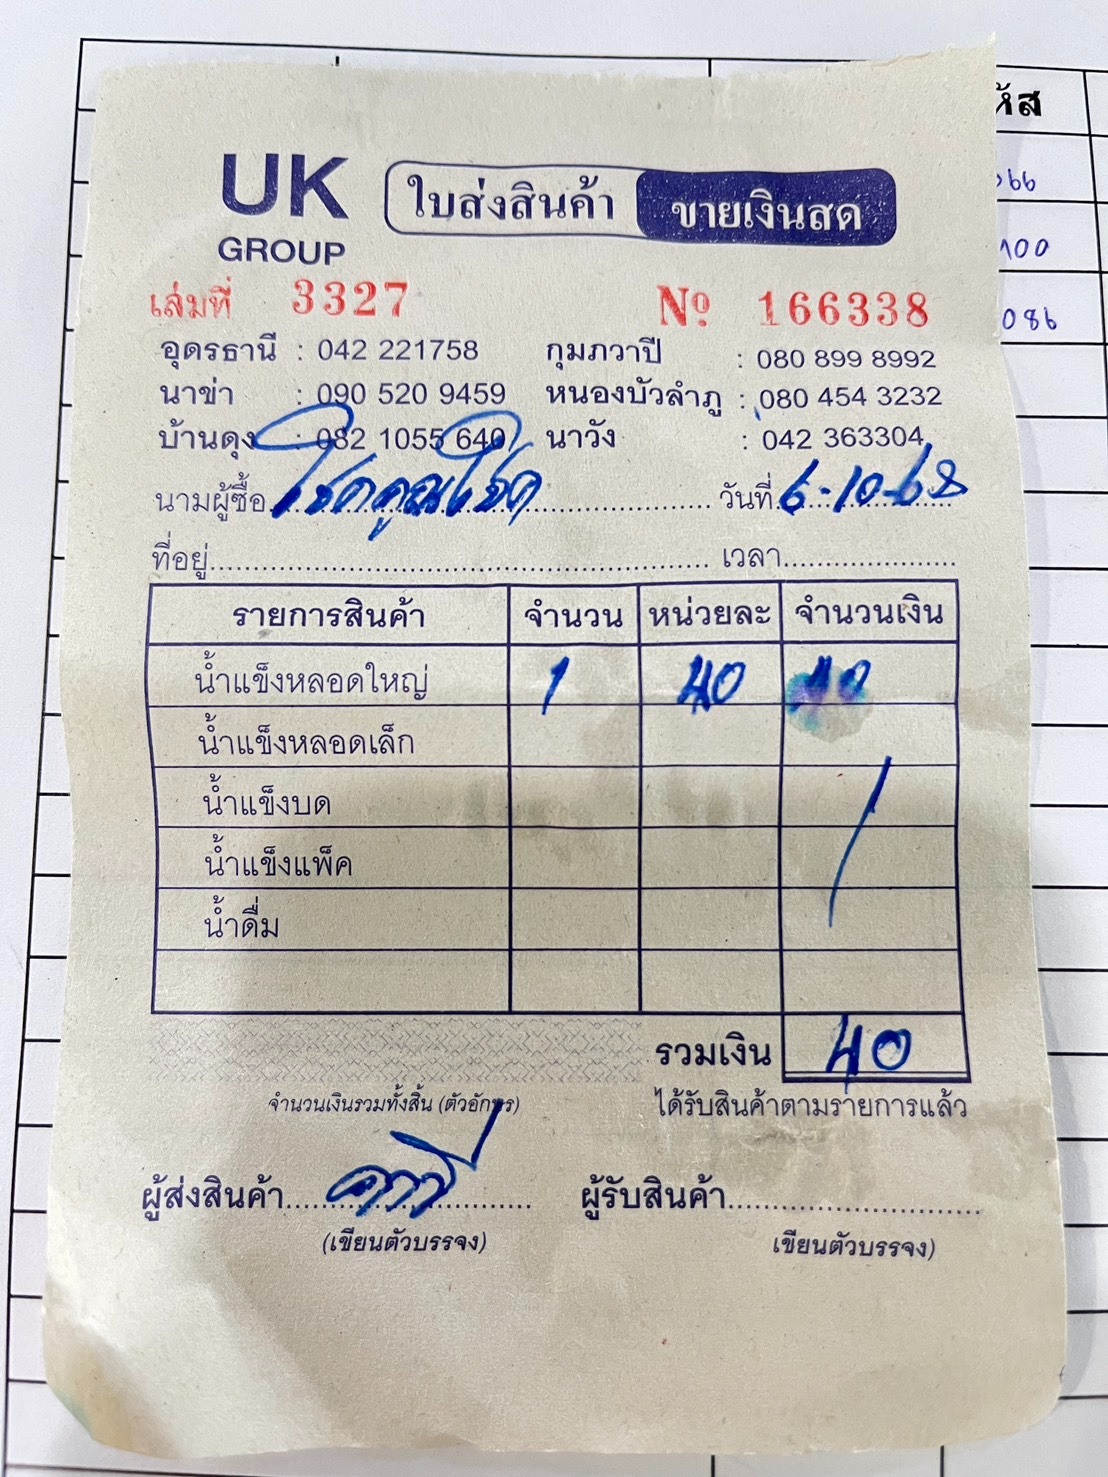 UK
GROUP
ใบส่งสินค้า ขายเงินสด
เล่มที่ 3327 Nº 166338
อุดรธานี : 042 221758 กุมภวาปี : 080 899 8992
นาข่า : 090 520 9459 หนองบัวลำภู : 080 454 3232
บ้านดุง : 082 1055 640 นาวัง : 042 363304
นามผู้ซื้อ โชคคูณโชค วันที่ 6-10-68
ที่อยู่ เวลา
รายการสินค้า จำนวน หน่วยละ จำนวนเงิน
น้ำแข็งหลอดใหญ่ 1 40 40
น้ำแข็งหลอดเล็ก
น้ำแข็งบด
น้ำแข็งแพ็ค
น้ำดื่ม
รวมเงิน 40
จำนวนเงินรวมทั้งสิ้น (ตัวอักษร) ได้รับสินค้าตามรายการแล้ว
ผู้ส่งสินค้า ผู้รับสินค้า
(เขียนตัวบรรจง) เขียนตัวบรรจง)